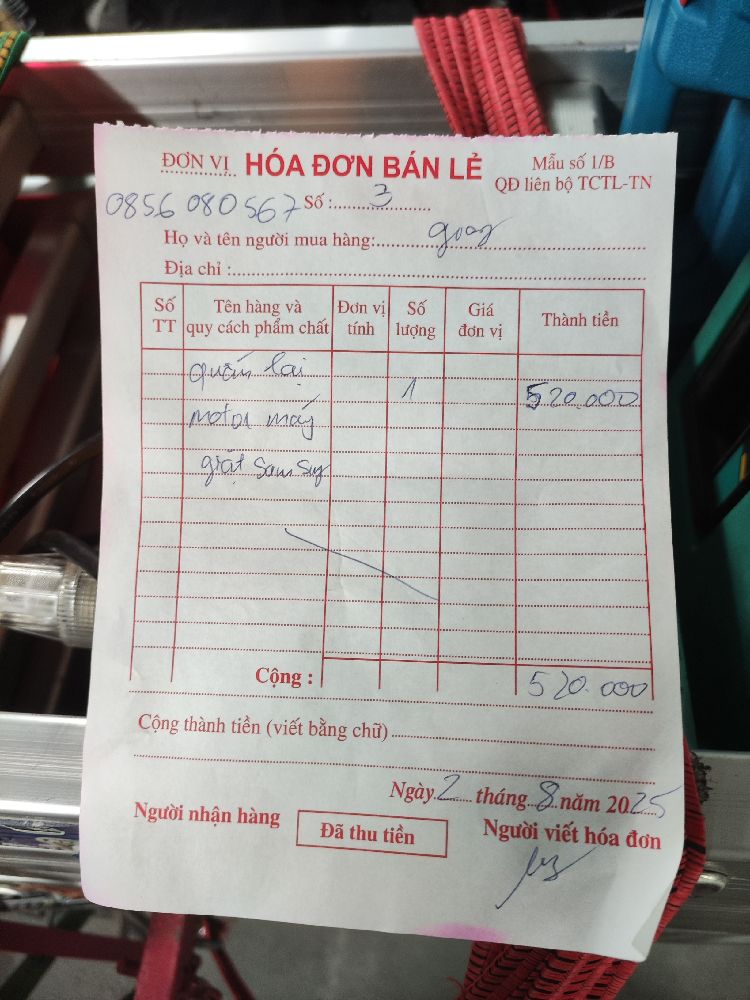 ĐƠN VỊ HÓA ĐƠN BÁN LẺ Mẫu số 1/B
QĐ liên bộ TCTL-TN
0856 080567 Số : 3
Họ và tên người mua hàng:
Địa chỉ :
Số TT Tên hàng và quy cách phẩm chất Đơn vị tính Số lượng Giá đơn vị Thành tiền
quấn lại 1 520.000
motor máy
giặt Sam Sung
Cộng : 520.000
Cộng thành tiền (viết bằng chữ)
Ngày 2 tháng 8 năm 2025
Người nhận hàng Đã thu tiền Người viết hóa đơn